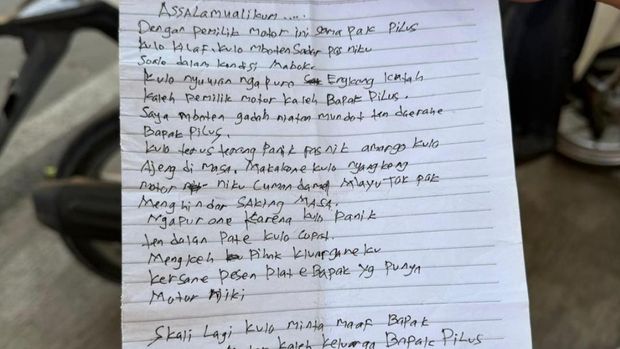 ASSALAMUALIKUM.....
Dengan Pemilik motor ini sama Pak Pilus
Kulo KHLAF. Kulo mboten Sadar Pas niku
Soalo dalam kondisi Mabok.
Kulo nyuwun ngapuro Engkang Kentah
Kaleh Pemilik motor kaleh Bapak Pilus.
Saya mboten gadah niatan mundot tan daerahe
Bapak Pilus.
Kulo terus terang Panik Pas nik amargo kulo
Ajeng di masa. Makalone kulo nyangkeng
motor niku Cuman damel Mlayu Tok Pak
Menghindar SAKING MASA.
Ngapurane Karena kulo Panik
ten dalan Pate kulo Copot.
Mengkeh Pihak Kluarganeku
Kersane Pesen Plate Bapak yg Punya
Motor niki
Skali Lagi kulo minta maaf Bapak
kaleh Keluarga Bapak Pilus